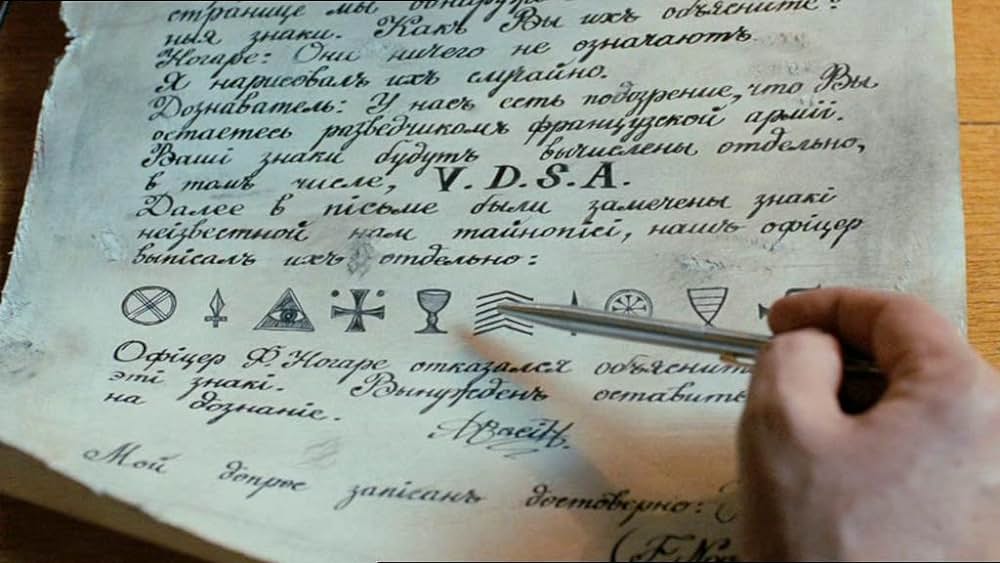 странице мы обнаружили
ныя знаки. Какъ Вы ихъ объясните?
Ногаре: Они ничего не означаютъ
Я нарисовалъ ихъ случайно.
Дознаватель: У насъ есть подозрение, что Вы
остаетесь разведчикомъ французской армii.
Вашi знаки будутъ вычислены отдельно,
в томъ числе, V.D.S.A.
Далее в пiсьме были замечены знакi
неiзвестной нам тайнопiсi, нашъ офiцер
выпiсалъ ихъ отдельно:
Офiцер Ф. Ногаре отказался объяснить
этi знакi. Вынужденъ оставить
на дознанiе.
Мой допрос запiсанъ достоверно:
(F. Nog